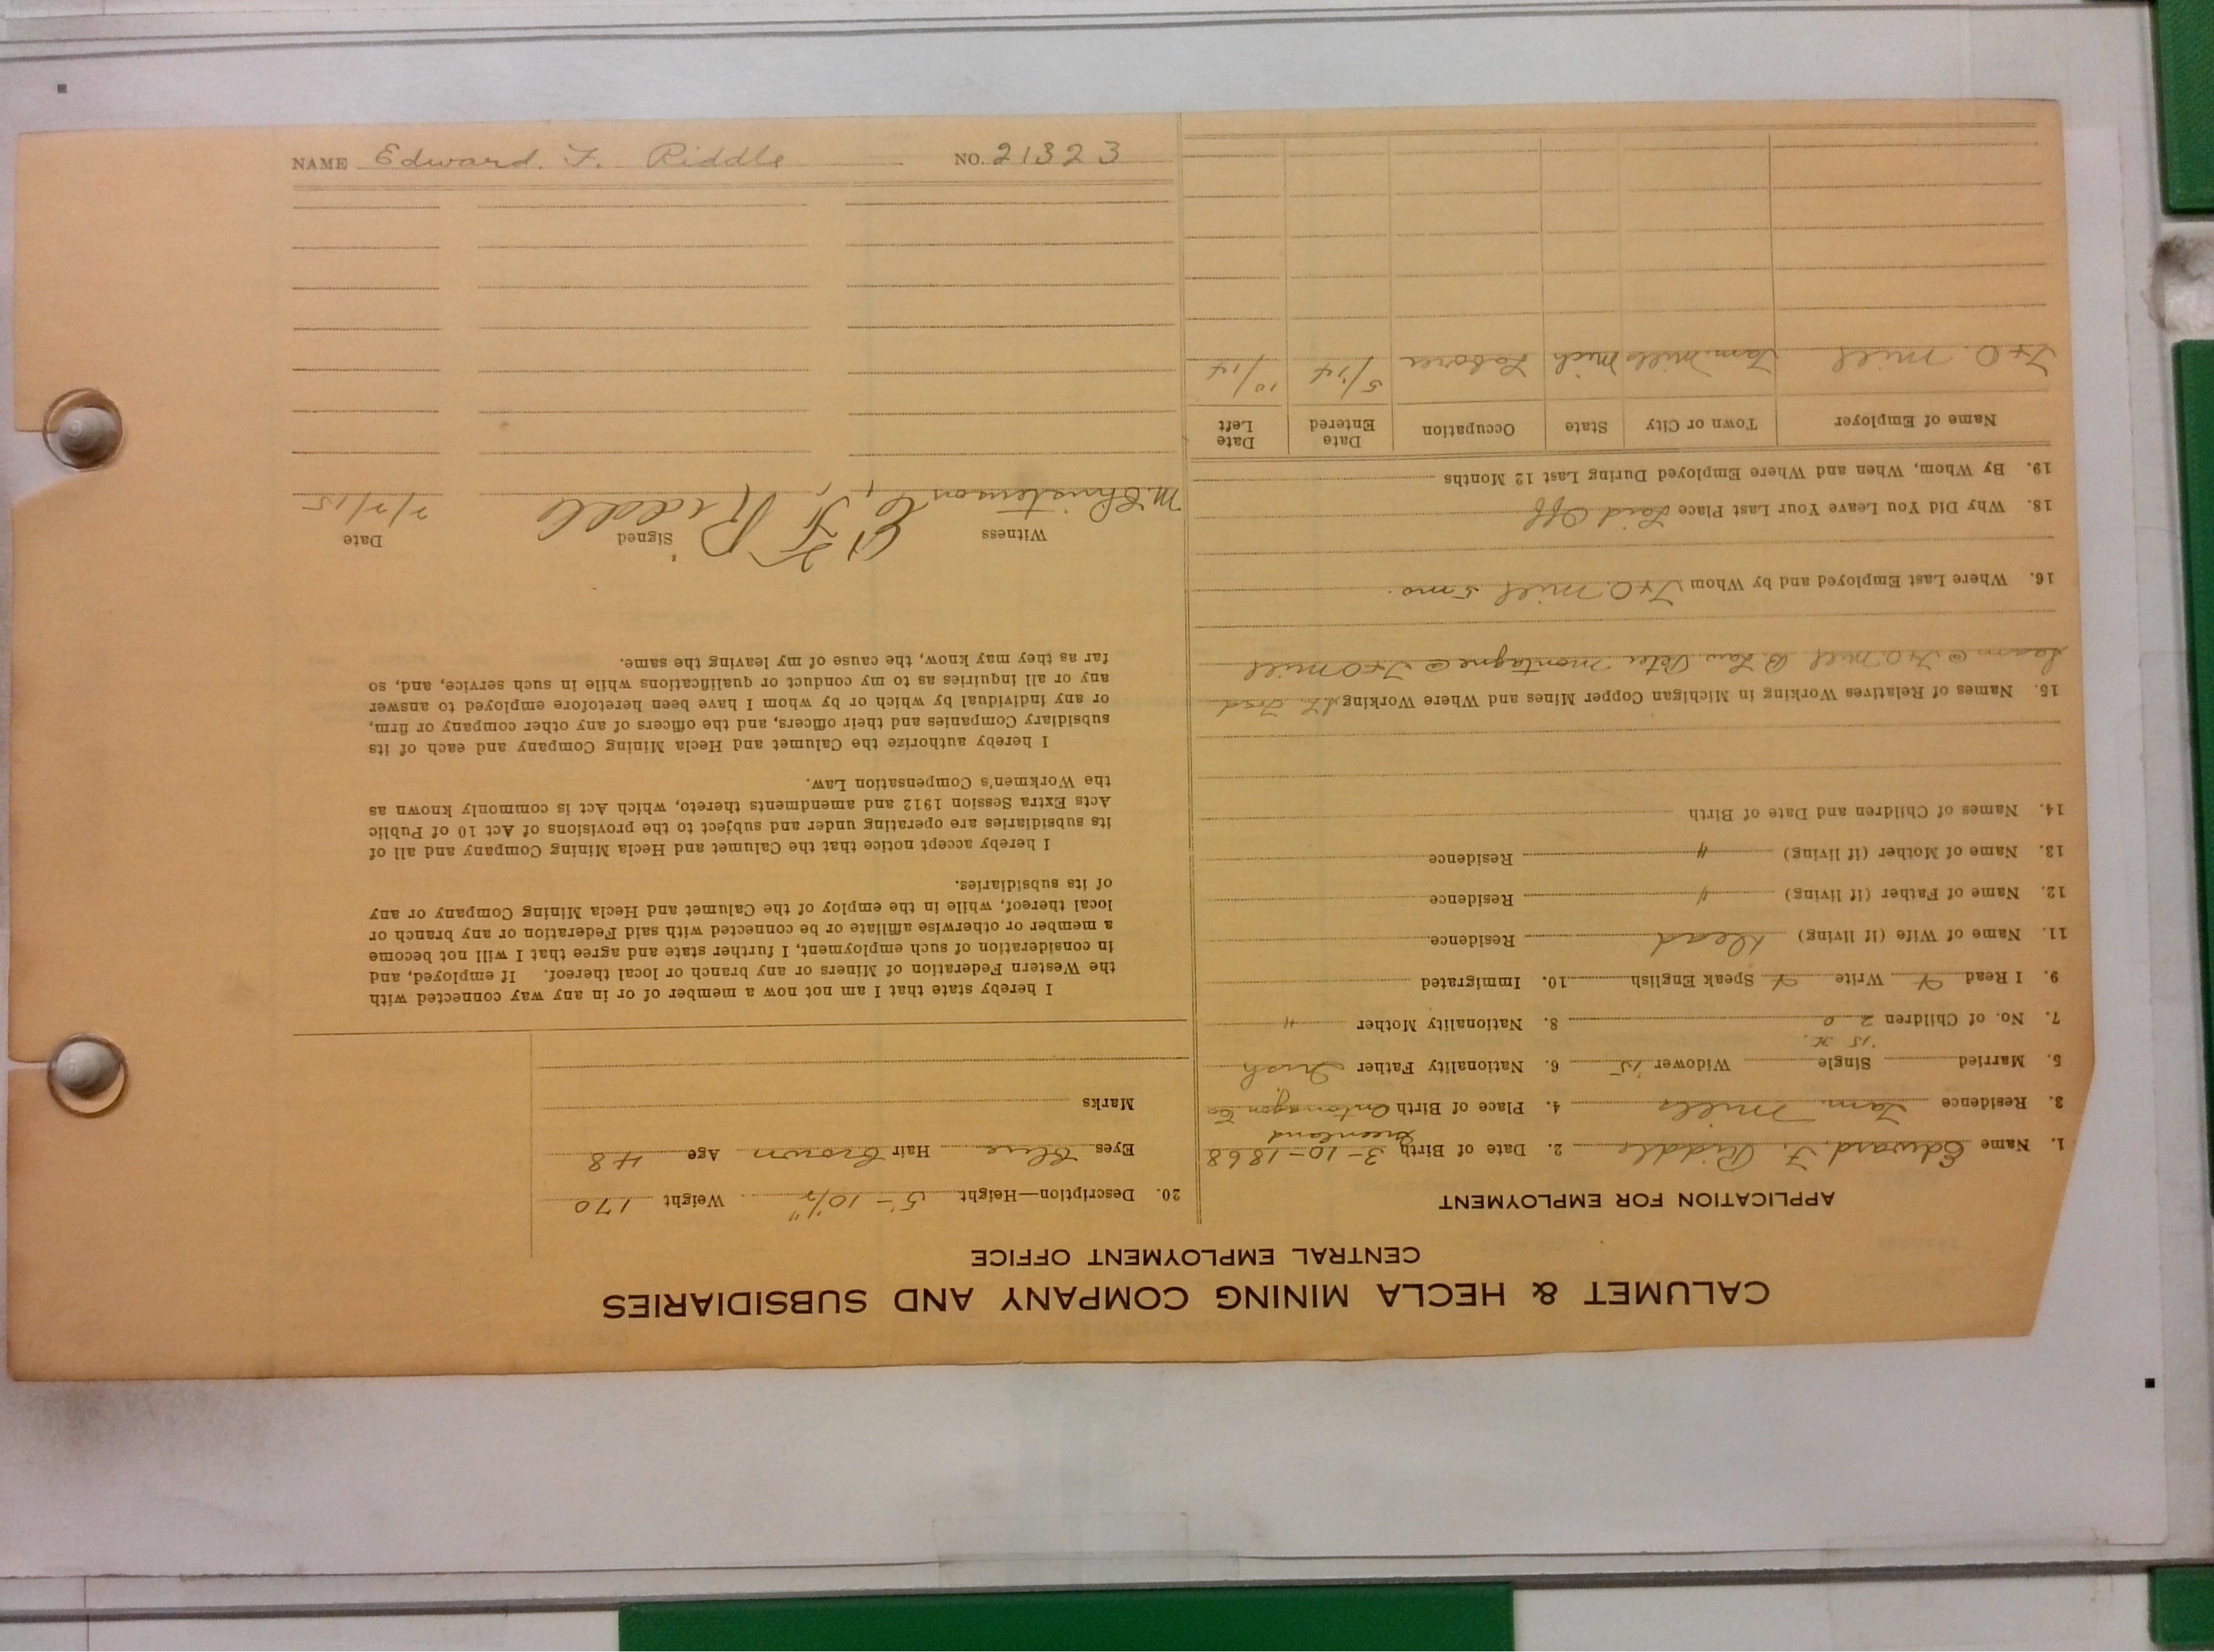 CALUMET & HECLA MINING COMPANY AND SUBSIDIARIES
CENTRAL EMPLOYMENT OFFICE
APPLICATION FOR EMPLOYMENT
1. Name Edward. F. Riddle 2. Date of Birth 3-10-1868
Greenland
3. Residence Tam. Mills 4. Place of Birth Ontonagon Co
5. Married Single Widower 6. Nationality Father Irish
7. No. of Children 2 8. Nationality Mother "
9. I Read Y Write Y Speak English 10. Immigrated
11. Name of Wife (if living) Dead Residence
12. Name of Father (if living) " Residence
13. Name of Mother (if living) " Residence
14. Names of Children and Date of Birth
15. Names of Relatives Working in Michigan Copper Mines and Where Working
@ T+O. Mill B Law Peter Montagne @ T+O Mill
16. Where Last Employed and by Whom T+O. Mill 5 mo.
18. Why Did You Leave Your Last Place Laid Off
19. By Whom, When and Where Employed During Last 12 Months
Name of Employer Town or City State Occupation Date Entered Date Left
T+O. Mill Tam. Mills Mich Laborer 5/14 10/14
20. Description—Height 5-10½" Weight 170
Eyes Blue Hair Brown Age 48
Marks
I hereby state that I am not now a member of or in any way connected with
the Western Federation of Miners or any branch or local thereof. If employed, and
in consideration of such employment, I further state and agree that I will not become
a member or otherwise affiliate or be connected with said Federation or any branch or
local thereof, while in the employ of the Calumet and Hecla Mining Company or any
of its subsidiaries.
I hereby accept notice that the Calumet and Hecla Mining Company and all of
its subsidiaries are operating under and subject to the provisions of Act 10 of Public
Acts Extra Session 1912 and amendments thereto, which Act is commonly known as
the Workmen's Compensation Law.
I hereby authorize the Calumet and Hecla Mining Company and each of its
subsidiary Companies and their officers, and the officers of any other company or firm,
or any individual by which or by whom I have been heretofore employed to answer
any or all inquiries as to my conduct or qualifications while in such service, and, so
far as they may know, the cause of my leaving the same.
Witness Signed Date
M. Christenson E. F. Riddle 7/7/15
NAME Edward. F. Riddle NO. 21323